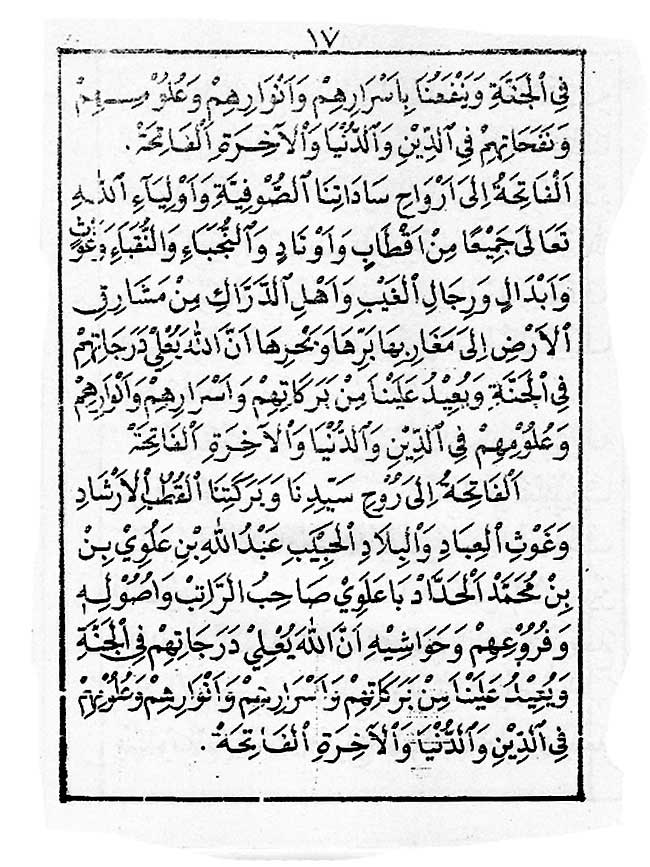 ١٧
فِي الْجَنَّةِ وَيَنْفَعُنَا بِاَسْرَارِهِمْ وَاَنْوَارِهِمْ وَعُلُوْمِهِمْ
وَنَفَحَاتِهِمْ فِي الدِّيْنِ وَالدُّنْيَا وَالْآخِرَةِ اَلْفَاتِحَةْ.
اَلْفَاتِحَةُ اِلَى اَرْوَاحِ سَادَاتِنَا الصُّوْفِيَّةِ وَاَوْلِيَآءِ اللهِ
تَعَالَى جَمِيْعًا مِنْ اَقْطَابٍ وَاَوْتَادٍ وَالنُّجَبَاءِ وَالنُّقَبَاءِ وَغَوْثٍ
وَاَبْدَالٍ وَرِجَالِ الْغَيْبِ وَاَهْلِ الدَّرَّاكِ مِنْ مَشَارِقِ
الْاَرْضِ اِلَى مَغَارِبِهَا بَرِّهَا وَبَحْرِهَا اَنَّ اللهَ يُعْلِيْ دَرَجَاتِهِمْ
فِي الْجَنَّةِ وَيُعِيْدُ عَلَيْنَا مِنْ بَرَكَاتِهِمْ وَاَسْرَارِهِمْ وَاَنْوَارِهِمْ
وَعُلُوْمِهِمْ فِي الدِّيْنِ وَالدُّنْيَا وَالْآخِرَةِ اَلْفَاتِحَةْ
اَلْفَاتِحَةُ اِلَى رُوْحِ سَيِّدِنَا وَبَرَكَتِنَا الْقُطْبِ الْاِرْشَادِ
وَغَوْثِ الْعِبَادِ وَالْبِلَادِ الْحَبِيْبِ عَبْدُ اللهِ بْنِ عَلَوِيْ بِنْ
بِنْ مُحَمَّدْ اَلْحَدَّادْ بَاعَلَوِيْ صَاحِبُ الرَّاتِبْ وَاُصُوْلِهِ
وَفُرُوْعِهِمْ وَحَوَاشِيْهِ اَنَّ اللهَ يُعْلِيْ دَرَجَاتِهِمْ فِي الْجَنَّةِ
وَيُعِيْدُ عَلَيْنَا مِنْ بَرَكَاتِهِمْ وَاَسْرَارِهِمْ وَاَنْوَارِهِمْ وَعُلُوْمِهِمْ
فِي الدِّيْنِ وَالدُّنْيَا وَالْآخِرَةِ اَلْفَاتِحَةْ.